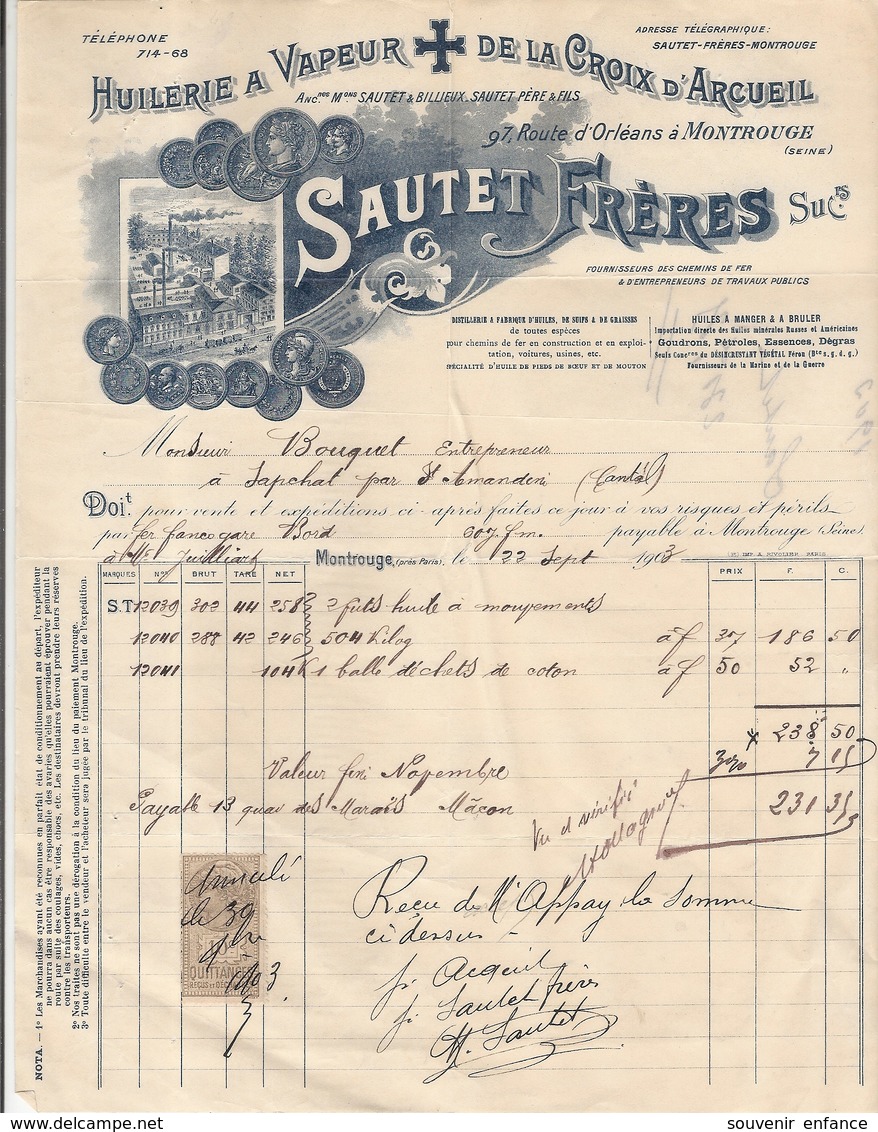 TÉLÉPHONE
714-68
ADRESSE TÉLÉGRAPHIQUE:
SAUTET-FRÈRES-MONTROUGE
HUILERIE A VAPEUR DE LA CROIX D'ARCUEIL
ANC.nes M.ons SAUTET & BILLIEUX. SAUTET PÈRE & FILS
97, Route d'Orléans à MONTROUGE
(SEINE)
SAUTET FRÈRES Sucrs
FOURNISSEURS DES CHEMINS DE FER
& D'ENTREPRENEURS DE TRAVAUX PUBLICS
DISTILLERIE & FABRIQUE D'HUILES, DE SUIFS & DE GRAISSES
de toutes espèces
pour chemins de fer en construction et en exploi-
tation, voitures, usines, etc.
SPÉCIALITÉ D'HUILE DE PIEDS DE BŒUF ET DE MOUTON
HUILES A MANGER & A BRULER
Importation directe des Huiles minérales Russes et Américaines
Goudrons, Pétroles, Essences, Dégras
Seuls Concres du DÉSINCRUSTANT VÉGÉTAL Féron (Bte s.g.d.g.)
Fournisseurs de la Marine et de la Guerre
Monsieur Bouquet Entrepreneur
à Sapchat par St Amandin (Cantal)
Doit pour vente et expéditions ci-après faites ce jour à vos risques et périls
par fer franco gare Bord payable à Montrouge (Seine)
Montrouge, (près Paris), le 22 Sept 1903
IMP. A. RIVOLIER PARIS
MARQUES Nos BRUT TARE NET PRIX F. C.
S.T. 12039 302 44 258 2 futs huile à mouvements
12040 288 42 246 504 Kilog à f 37 186 50
12041 104 K 1 balle déchets de coton à f 50 52 "
238 50
3% 7 15
Valeur fin Novembre
Payable 13 quai des Marans Mâcon 231 35
Vu et vérifié
Annulé
le 30
9bre
1903
QUITTANCES
REÇUS ET DÉCHARGES
Reçu de Mr Appay la somme
ci dessus
pr Acquit
pr Sautet frères
H. Sautet
NOTA. — 1º Les Marchandises ayant été reconnues en parfait état de conditionnement au départ, l'expéditeur
ne pourra dans aucun cas être responsable des avaries qu'elles pourraient éprouver pendant la
route par suite des coulages, vides, chocs, etc. Les destinataires devront prendre leurs réserves
contre les transporteurs.
2º Nos traites ne sont pas une dérogation à la condition du lieu du paiement Montrouge.
3º Toute difficulté entre le vendeur et l'acheteur sera jugée par le tribunal du lieu de l'expédition.
souvenir enfance
www.delcampe.net